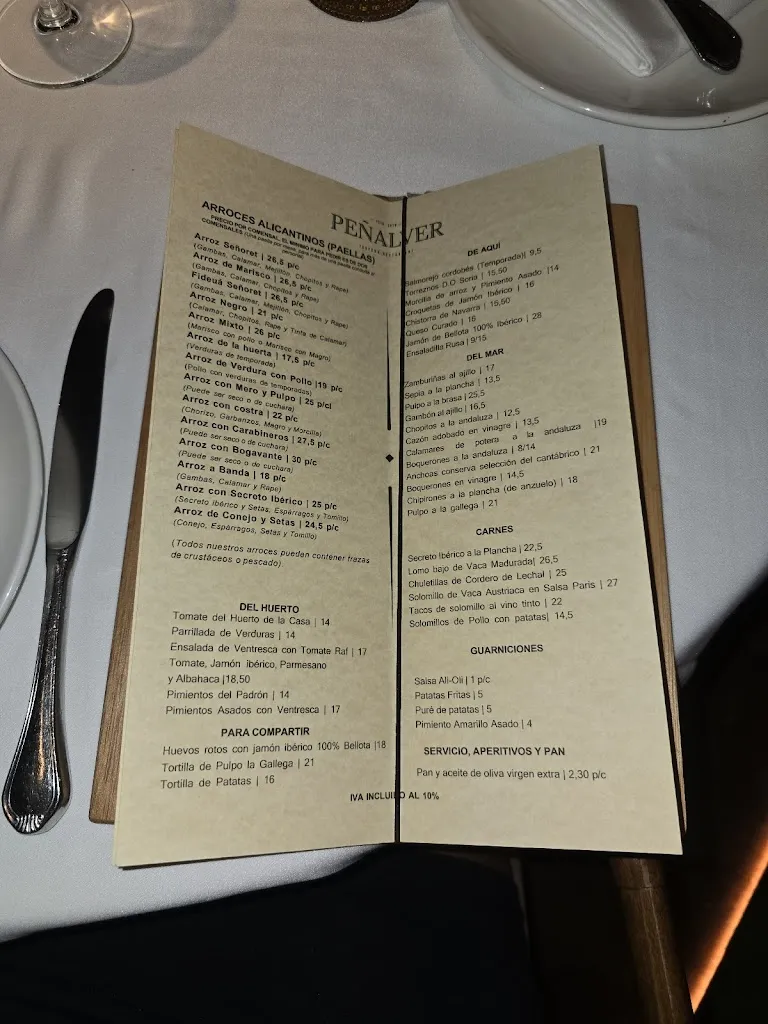 PEÑALVER
ARROCES ALICANTINOS (PAELLAS)
PRECIO POR COMENSAL. EL MINIMO PARA PEDIR ES DE DOS
COMENSALES
Arroz Señoret | 26,5 p/c
(Gambas, Calamar, Mejillón, Chopitos y Rape)
Arroz de Marisco | 26,5 p/c
(Gambas, Calamar, Chopitos y Rape)
Fideuá Señoret | 26,5 p/c
(Gambas, Calamar, Mejillón, Chopitos y Rape)
Arroz Negro | 21 p/c
(Calamar, Chopitos, Rape y Tinta de Calamar)
Arroz Mixto | 26 p/c
(Marisco con pollo o Marisco con Magro)
Arroz de la huerta | 17,5 p/c
(Verduras de temporada)
Arroz de Verdura con Pollo |19 p/c
(Pollo con verduras de temporadas)
Arroz con Mero y Pulpo | 25 p/c|
(Puede ser seco o de cuchara)
Arroz con costra | 22 p/c
(Chorizo, Garbanzos, Magro y Morcilla)
Arroz con Carabineros | 27,5 p/c
(Puede ser seco o de cuchara)
Arroz con Bogavante | 30 p/c
(Puede ser seco o de cuchara)
Arroz a Banda | 18 p/c
(Gambas, Calamar y Rape)
Arroz con Secreto Ibérico | 25 p/c
(Secreto Ibérico y Setas, Espárragos y Tomillo)
Arroz de Conejo y Setas | 24,5 p/c
(Conejo, Espárragos, Setas y Tomillo)
(Todos nuestros arroces pueden contener trazas
de crustáceos o pescado)
DEL HUERTO
Tomate del Huerto de la Casa | 14
Parrillada de Verduras | 14
Ensalada de Ventresca con Tomate Raf | 17
Tomate, Jamón ibérico, Parmesano
y Albahaca |18,50
Pimientos del Padrón | 14
Pimientos Asados con Ventresca | 17
PARA COMPARTIR
Huevos rotos con jamón ibérico 100% Bellota |18
Tortilla de Pulpo la Gallega | 21
Tortilla de Patatas | 16
DE AQUÍ
Salmorejo cordobés (Temporada)| 9,5
Torreznos D.O Soria | 15,50
Morcilla de arroz y Pimiento Asado |14
Croquetas de Jamón Ibérico | 16
Chistorra de Navarra | 15,50
Queso Curado | 16
Jamón de Bellota 100% Ibérico | 28
Ensaladilla Rusa | 9/15
DEL MAR
Zamburiñas al ajillo | 17
Sepia a la plancha | 13,5
Pulpo a la brasa | 25,5
Gambón al ajillo | 16,5
Chopitos a la andaluza | 12,5
Cazón adobado en vinagre | 13,5
Calamares de potera a la andaluza |19
Boquerones a la andaluza | 8/14
Anchoas conserva selección del cantábrico | 21
Boquerones en vinagre | 14,5
Chipirones a la plancha (de anzuelo) | 18
Pulpo a la gallega | 21
CARNES
Secreto Ibérico a la Plancha | 22,5
Lomo bajo de Vaca Madurada| 26,5
Chuletillas de Cordero de Lechal | 25
Solomillo de Vaca Austriaca en Salsa Paris | 27
Tacos de solomillo al vino tinto | 22
Solomillos de Pollo con patatas| 14,5
GUARNICIONES
Salsa Ali-Oli | 1 p/c
Patatas Fritas | 5
Puré de patatas | 5
Pimiento Amarillo Asado | 4
SERVICIO, APERITIVOS Y PAN
Pan y aceite de oliva virgen extra | 2,30 p/c
IVA INCLUIDO AL 10%